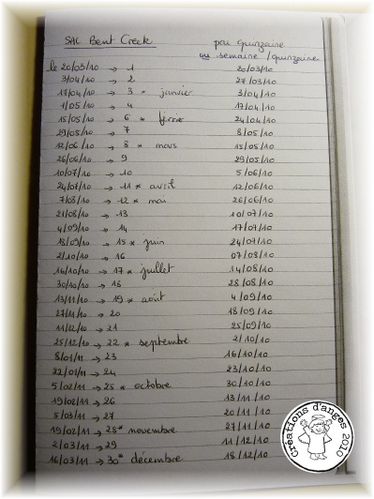 SAL Bent Creek par quinzaine
ou semaine/quinzaine
le 20/03/10 → 1 20/03/10
3/04/10 → 2 27/03/10
17/04/10 → 3 * janvier 3/04/10
1/05/10 → 4 17/04/10
15/05/10 → 6 * février 24/04/10
29/05/10 → 7 8/05/10
12/06/10 → 8 * mars 15/05/10
26/06/10 → 9 29/05/10
10/07/10 → 10 5/06/10
24/07/10 → 11 * avril 12/06/10
7/03/10 → 12 * mai 26/06/10
21/08/10 → 13 10/07/10
4/09/10 → 14 17/07/10
18/09/10 → 15 * juin 24/07/10
2/10/10 → 16 07/08/10
16/10/10 → 17 * juillet 14/08/10
30/10/10 → 18 28/08/10
13/11/10 → 19 * août 4/09/10
27/11/10 → 20 18/09/10
11/12/10 → 21 25/09/10
25/12/10 → 22 * septembre 2/10/10
8/01/11 → 23 16/10/10
22/01/11 → 24 23/10/10
5/02/11 → 25 * octobre 30/10/10
19/02/11 → 26 13/11/10
5/03/11 → 27 20/11/10
19/02/11 → 28 * novembre 27/11/10
2/03/11 → 29 11/12/10
16/03/11 → 30 * décembre 18/12/10
Créations d'anges 2010